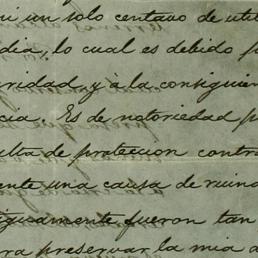 ni un solo centavo de util
dia, lo cual es debido p
uridad y à la consiguien
cia. Es de notoriedad p
ulta de proteccion contra
ente una causa de ruina
tiguamente fueron tan
ra preservar la mia a